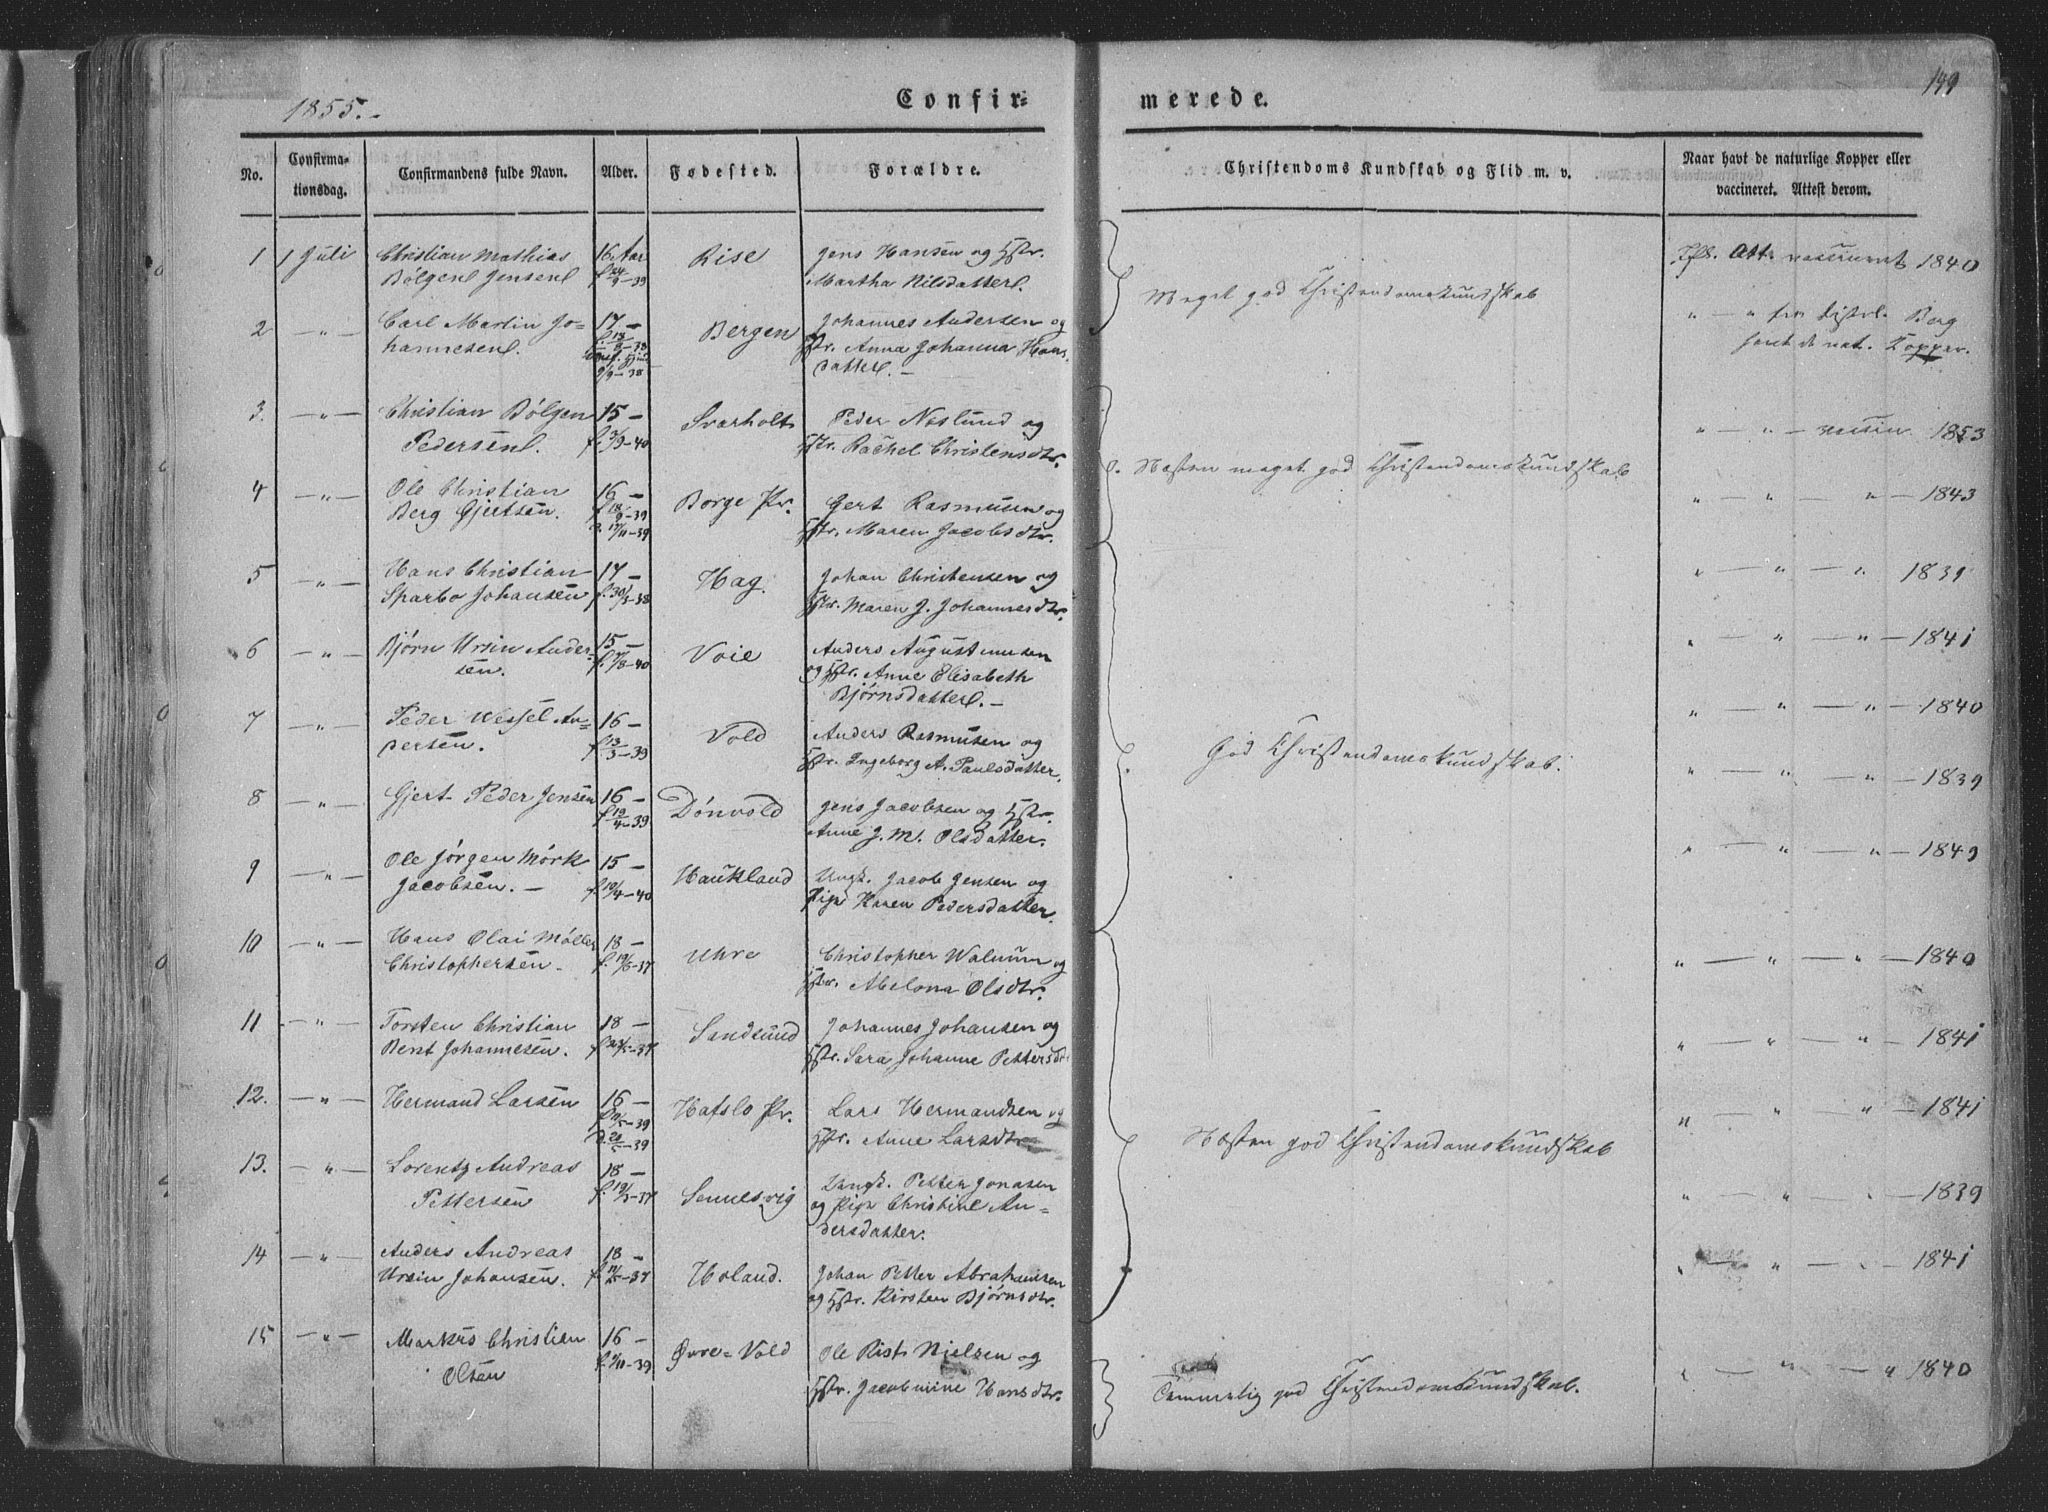 1855.-
Confir-
merede.
149
No.
Confirma-
tionsdag.
Confirmandens fulde Navn.
Alder.
Fødested.
Forældre.
Christendoms Kundskab og Flid m. v.
Naar havt de naturlige Kopper eller
vaccineret. Attest derom.
1 1 Juli Christian Mathias 16 Aar Rise Jens Hansen og Hstr.
Bølgen Jensen f. 24/9-39 Martha Nilsdatter.
Meget god Christendomskundskab
Att. vaccineret 1840
2 — " — Carl Martin Jo- 17 — Bergen Johannes Andersen og
hannesen. Hstr. Anna Johanna Hans
datter. —
9/9-38
" — " fra Distrl. Berg
havt de nat. Kopper.
3. — " — Christian Bølgen 15 — Svarholt Peder Næslund og
Pedersen. f. 3/9-40 Hstr. Rachel Christensdtr.
" — " — vaccin. 1853
Næsten meget god Christendomskundskab
4 — " — Ole Christian 16 — Borge Pr. Gert Rasmusen og
Berg Gjertsen. f. 18/9-39 Hstr. Maren Jacobsdtr.
d. 17/11-39
" — " — " — 1843
5 — " — Hans Christian 17 — Hag. Johan Christensen og
Sparbo Johansen f. 30/3-38 Hstr. Maren J. Johannesdtr.
" — " — " 1839
6 — " — Bjørn Ursin Ander- 15 — Voie Anders Augustinusen
sen. og Hstr. Anne Elisabeth
Bjørnsdatter. —
" — " — " — 1841
7 — " — Peder Wessel An- 16 — Vold Anders Rasmusen og
dersen. f. 13/3-39 Hstr. Ingeborg A. Paulsdatter.
" — " — " — 1840
God Christendomskundskab.
8 — " — Gjert Peder Jensen 16 — Dønvold Jens Jacobsen og Hstr.
f. 19/4-39 Anne J. M. Olsdatter.
" — " — " — 1839
9 — " — Ole Jørgen Mørk 15 — Haukland Ungk. Jacob Jensen og
Jacobsen. — f. 10/4-40 Pige Karen Pedersdatter.
" — " — " — 1849
10 — " — Hans Olai Møller 18 — Uhre Christopher Walnum og
Christophersen. Hstr. Abelona Olsdtr.
" — " — " — 1840
11 — " — Torsten Christian 18 — Sandsund Johannes Johansen og
Bernt Johannesen. f. 23/5-37 Hstr. Sara Johanne Pettersd
" — " — " — 1841
12. — " — Hermand Larsen 16 — Hafslo Pr. Lars Hermandsen og
Hstr. Anne Larsdtr.
" " " — 1841
Næsten god Christendomskundskab
13. — " — Lorentz Andreas 18 — Semmesvig Ungk. Petter Jonasen
Pettersen og Pige Christine An-
dersdatter.
" — " — " — 1839
14 — " — Anders Andreas 18 — Holand. Johan Petter Abrahamsen
Ursin Johansen. og Hstr. Kirsten Bjørnsdtr.
" — " — " — 1841
15 — " — Markus Christian 16 — Øvre-Vold Ole Rist Nielsen og
Olsen Hstr. Jacobmine Hansdtr.
Temmelig god Christendomskundskab.
" — " — " 1840